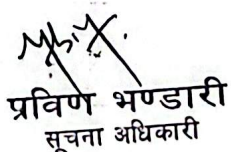 प्रविण भण्डारी
सूचना अधिकारी